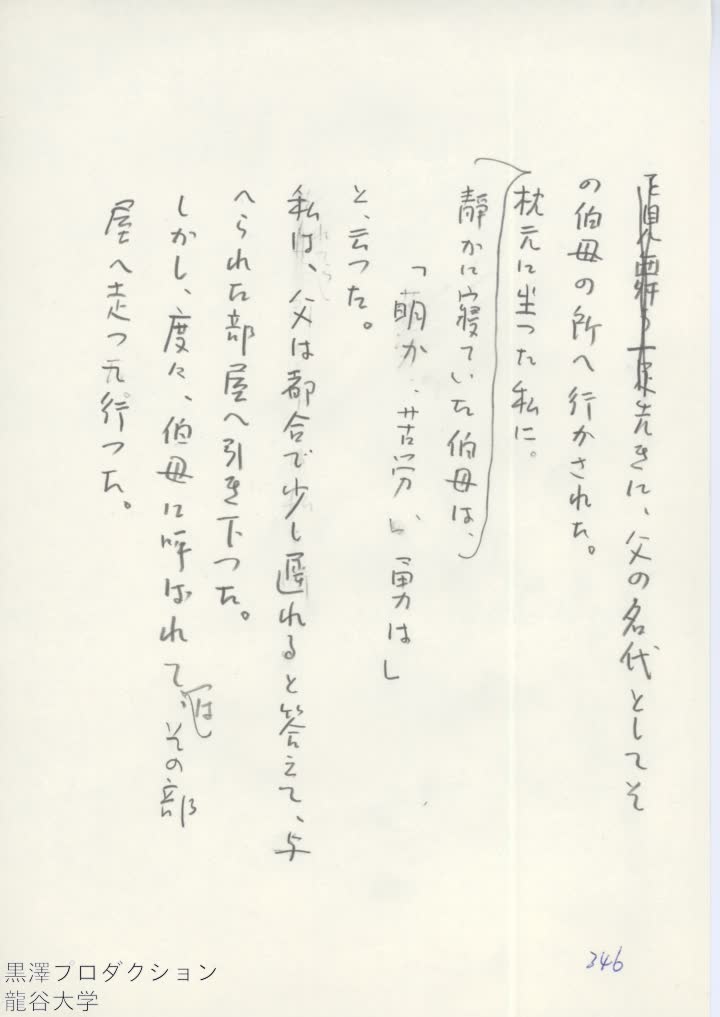 先きに、父の名代としてそ
の伯母の所へ行かされた。
枕元に坐つた私に。
静かに寝ていた伯母は、
「明か、苦労、勇は」
と、云つた。
私は、父は都合で少し遅れると答えて、与
へられた部屋へ引き下つた。
しかし、度々、伯母に呼ばれては、その部
屋へ走つて行つた。
346
黒澤プロダクション
龍谷大学